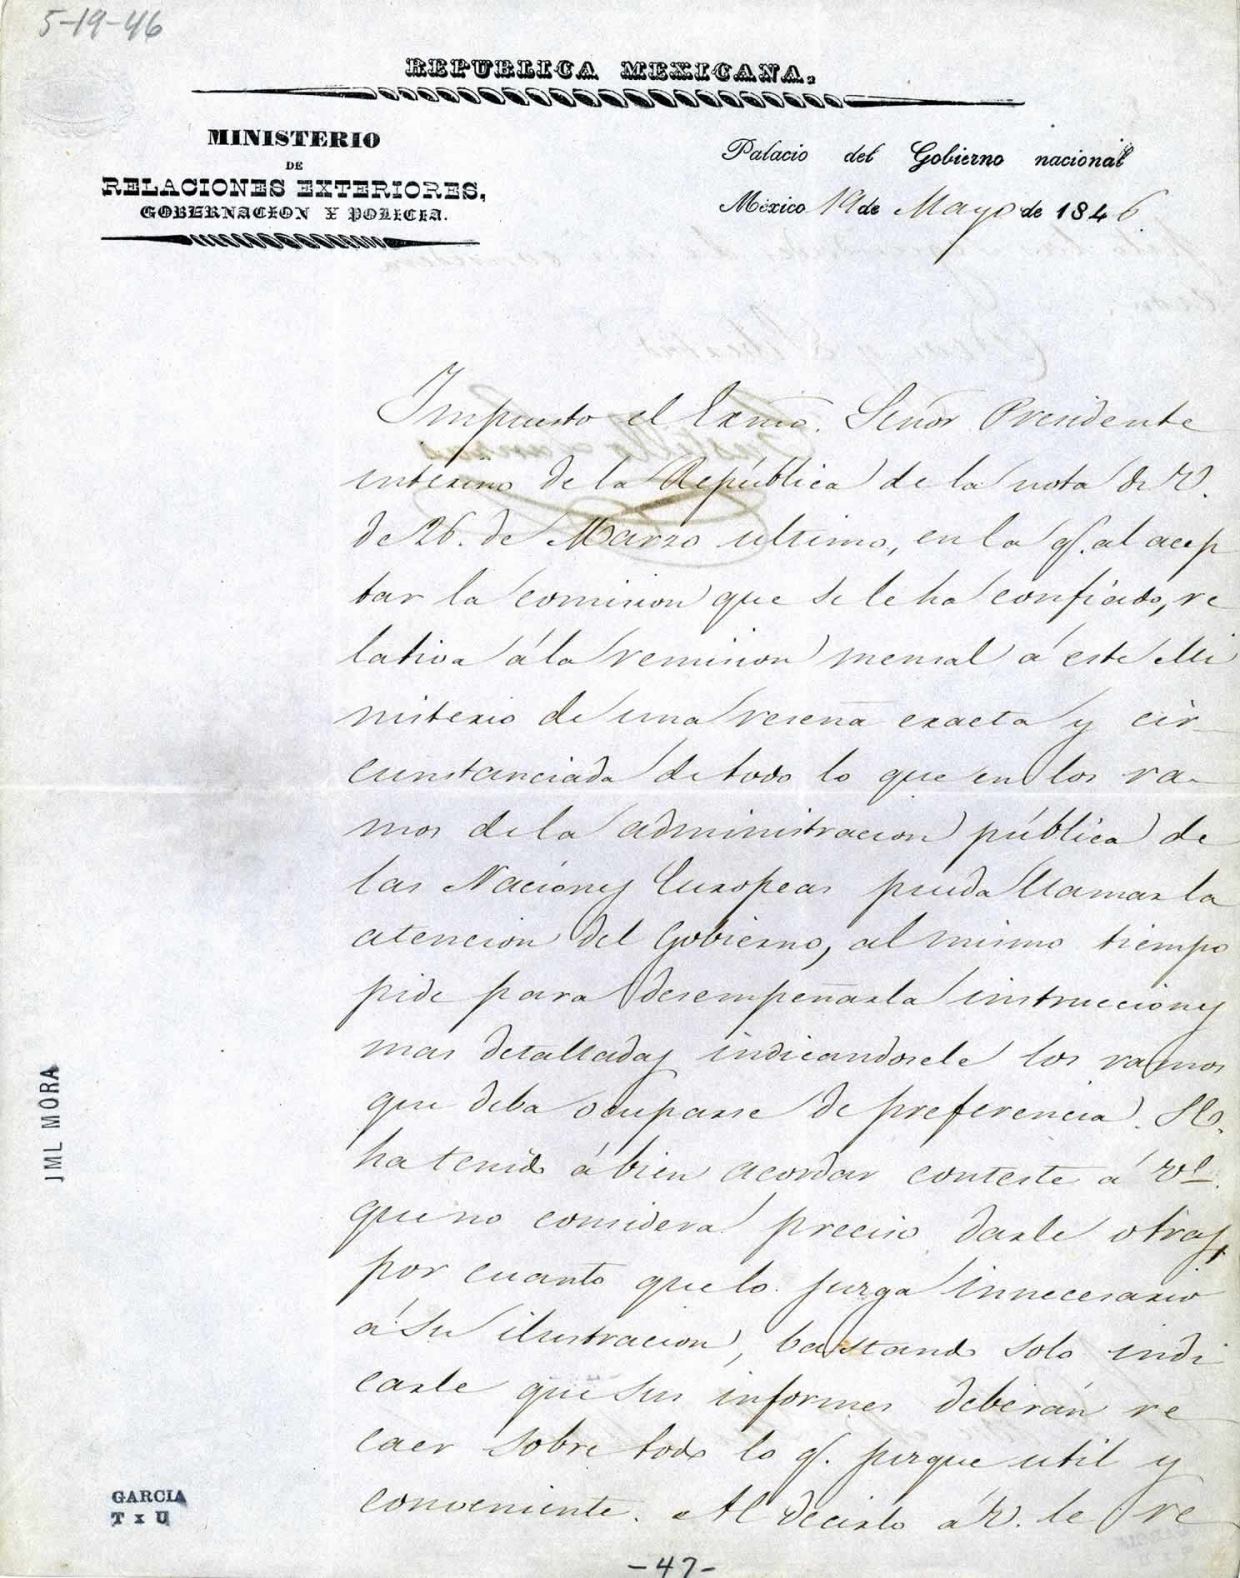 5-19-46
REPUBLICA MEXICANA.
MINISTERIO
DE
RELACIONES EXTERIORES,
GOBERNACION Y POLICIA.
Palacio del Gobierno nacional
México 19 de Mayo de 1846.
Impuesto el Exmo. Señor Presidente
interino de la República de la nota de V.
de 26. de Marzo ultimo, en la q.e al acep
tar la comision que se le ha confiado, re
lativa á la remision mensal á este Mi
nisterio de una reseña exacta y cir-
cunstanciada de todo lo que en los ra-
mos de la administracion pública de
las Naciónes Europeas pueda llamar la
atencion del Gobierno, al mismo tiempo
pide para desempeñarla instrucciónes
mas detalladas indicandosele los ramos
que deba ocuparse de preferencia. S.E.
ha tenido á bien acordar conteste á Vd.
que no considera preciso darle otras,
por cuanto que lo jusga innecesario
á su ilustracion, bastando solo indi
carle que sus informes deberán re
caer sobre todo lo q.e jusgue util y
conveniente. Al decirlo á V. le re
JML MORA
GARCIA
T x U
-47-